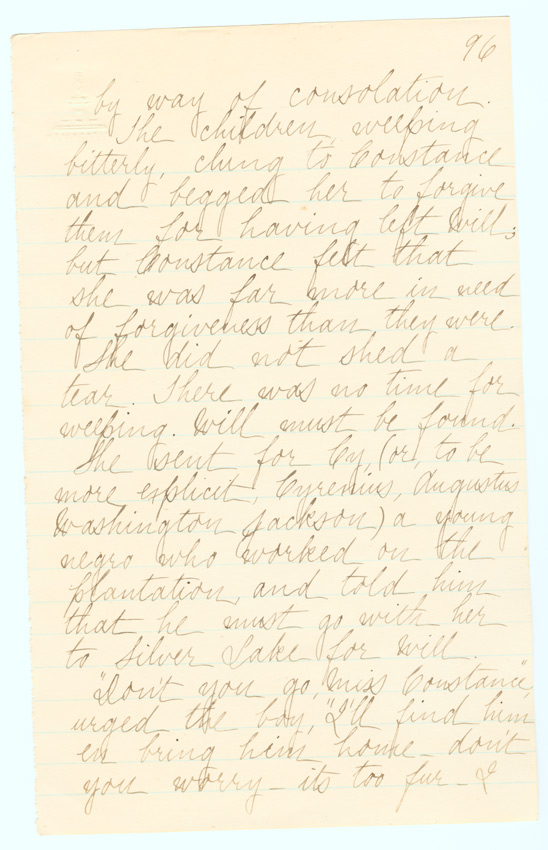 96
by way of consolation.
The children, weeping
bitterly, clung to Constance
and begged her to forgive
them for having left Will;
but Constance felt that
she was far more in need
of forgiveness than they were.
She did not shed a
tear. There was no time for
weeping. Will must be found.
She sent for Cy, (or, to be
more explicit, Cyrenius, Augustus
Washington Jackson) a young
negro who worked on the
plantation, and told him
that he must go with her
to Silver Lake for Will.
"Don't you go, Miss Constance",
urged the boy, "I'll find him
en bring him home - don't
you worry - its too fur - I